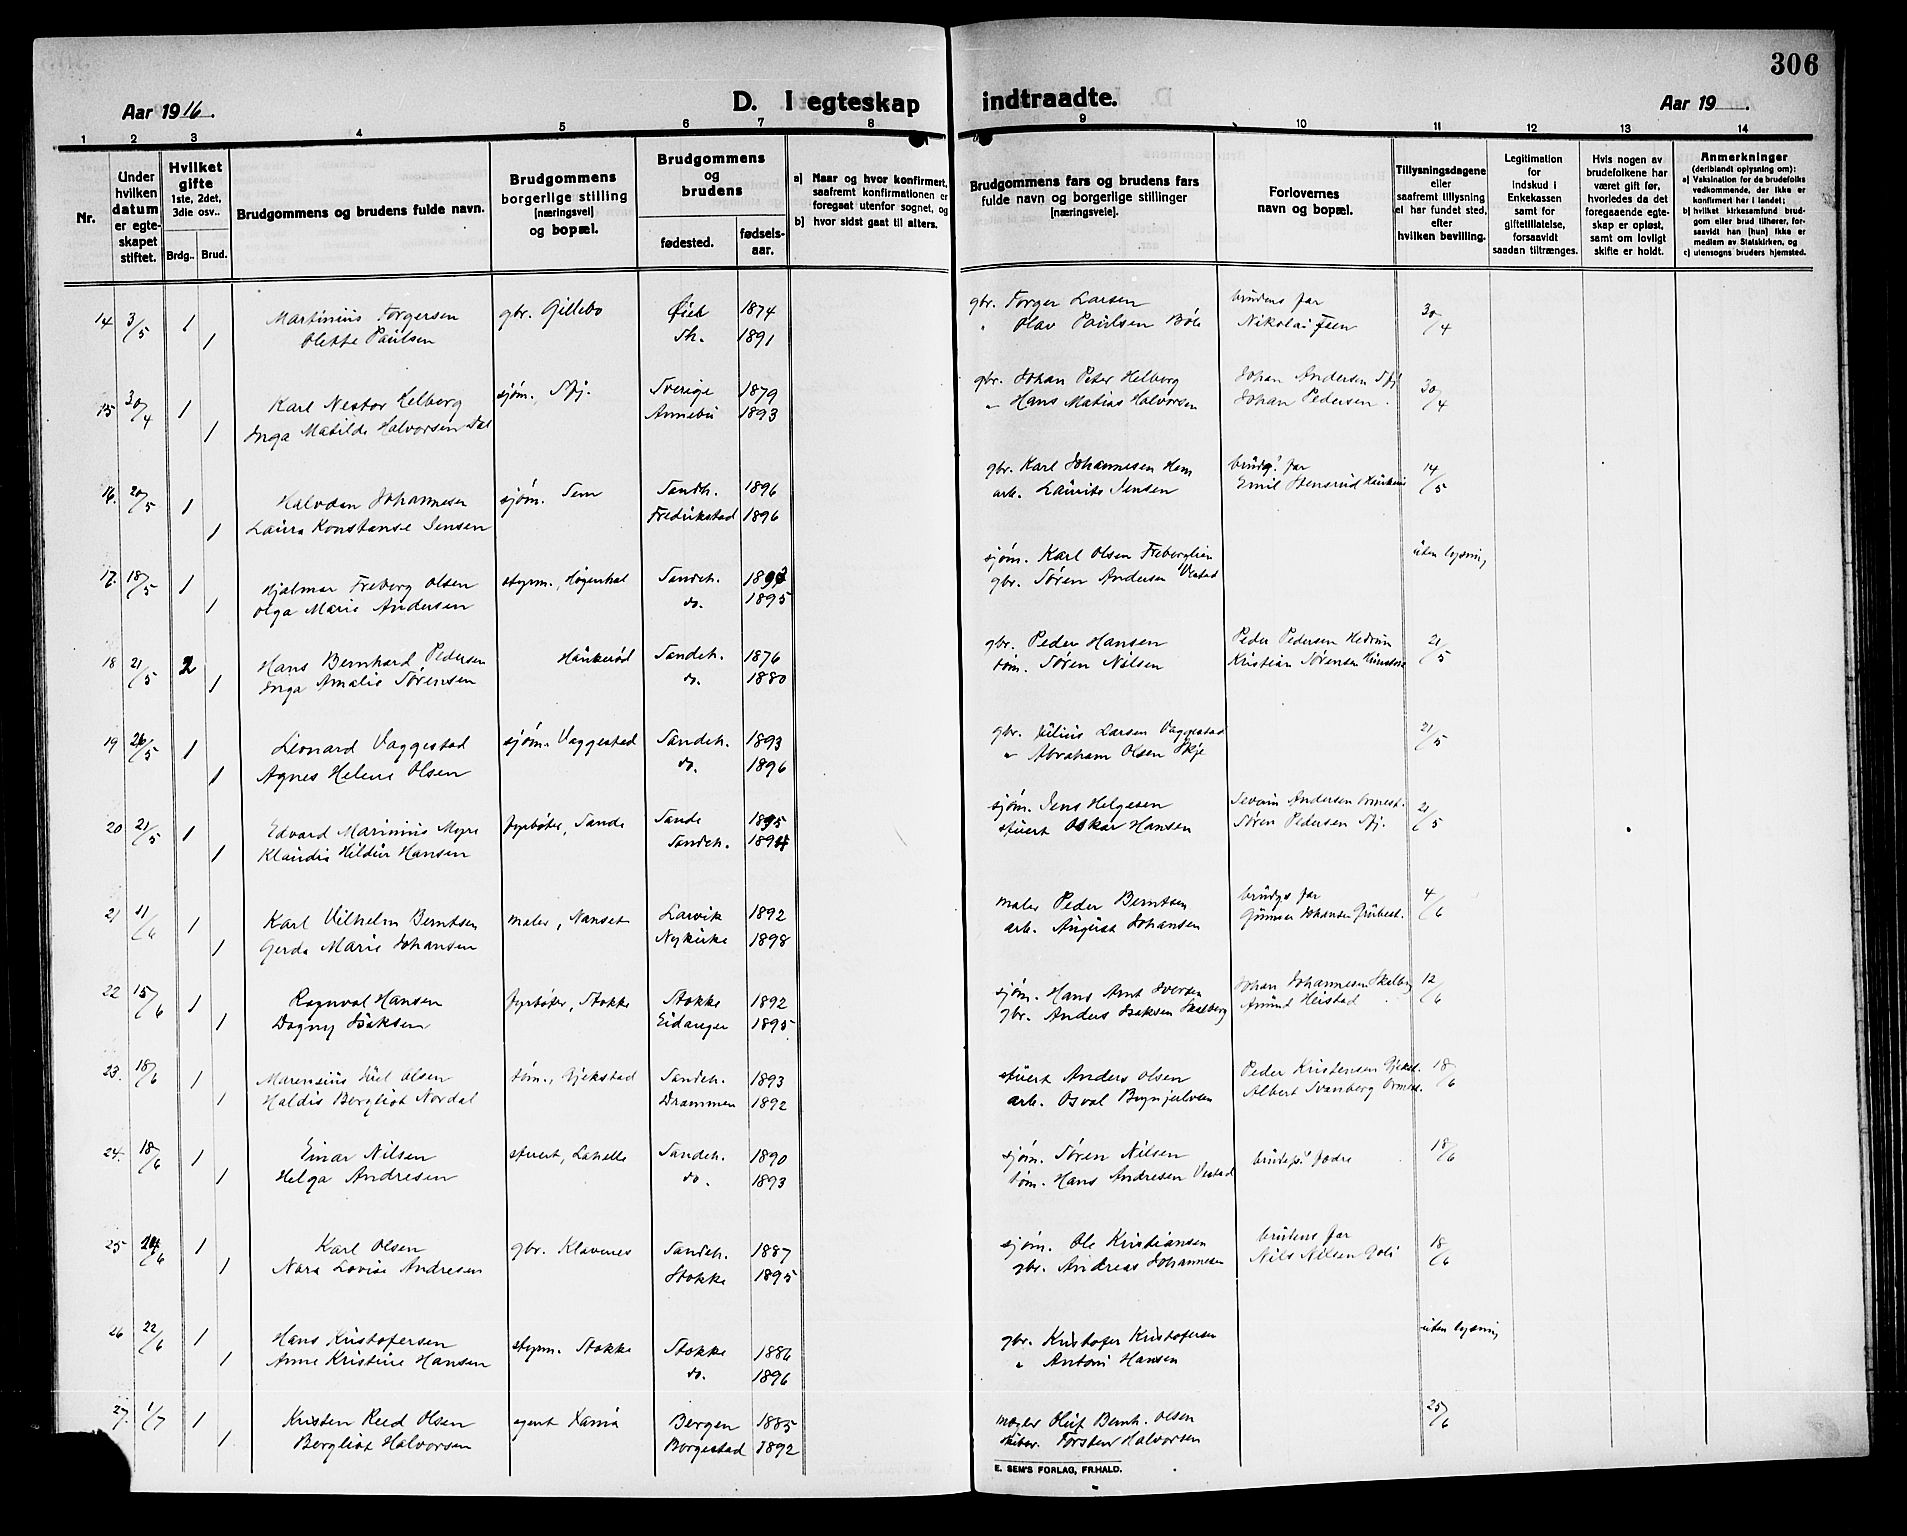 306
Aar 1916.
D. I egteskap indtraadte.
Aar 19 .
1 2 3 4 5 6 7 8 9 10 11 12 13 14
Nr.
Under hvilken datum er egteskapet stiftet.
Hvilket gifte 1ste, 2det, 3die osv..
Brdg.. Brud.
Brudgommens og brudens fulde navn.
Brudgommens borgerlige stilling [næringsvei] og bopæl.
Brudgommens og brudens
fødested. fødsels-aar.
a) Naar og hvor konfirmert, saafremt konfirmationen er foregaat utenfor sognet, og
b) hvor sidst gaat til alters.
Brudgommens fars og brudens fars fulde navn og borgerlige stillinger [næringsveie].
Forlovernes navn og bopæl.
Tillysningsdagene eller saafremt tillysning ei har fundet sted, efter hvilken bevilling.
Legitimation for indskud i Enkekassen samt for giftetillatelse, forsaavidt saadan tiltrænges.
Hvis nogen av brudefolkene har været gift før, hvorledes da det foregaaende egteskap er opløst, samt om lovligt skifte er holdt.
Anmerkninger (deriblandt oplysning om):
a) Vaksination for de brudefolks vedkommende, der ikke er konfirmert her i landet;
b) hvilket kirkesamfund brudgom eller brud tilhører, forsaavidt han [hun] ikke er medlem av Statskirken, og
c) utensogns bruders hjemsted.
14 3/5 1 Martinius Torgersen gbr. Gillebo Øieb 1874 gbr. Torger Larsen brudens far 30/4
1 Olette Paulsen Th. 1891 " Olav Paulsen Bøle Nikolai Feen
15 30/4 1 Karl Nestor Helberg sjøm., Spj. Sverige 1879 gbr. Johan Peter Helberg Johan Andersen Spj. 30/4
1 Inga Matilde Halvorsen Dal Annebu 1893 " Hans Matias Halvorsen Johan Pedersen
16. 20/5 1 Halvdan Johannesen sjøm. Sem Sandeh. 1896 gbr. Karl Johannesen Hem brudg. far 14/5
1 Laura Konstanse Jensen Fredrikstad 1896 arb. Laurits Jensen Emil Stensrud
17. 18/5 1 Hjalmar Freberg Olsen styrm., Høgenhal Sandeh. 1893 sjøm. Karl Olsen Freberglien uten lysning
1 Olga Marie Andersen do. 1895 gbr. Søren Andersen Vestad
18 21/5 2 Hans Bernhard Pedersen Haukerød Sandeh. 1876 gbr. Peder Hansen Peder Pedersen Hedrum 21/5
1 Inga Amalie Sørensen do. 1880 tøm. Søren Nilsen Kristian Sørensen
19 26/5 1 Leonard Vaggestad sjøm. Vaggestad Sandeh. 1893 gbr. Julius Larsen Vaggestad 21/5
1 Agnes Helene Olsen do. 1896 " Abraham Olsen Skje
20 21/5 1 Edvard Marinius Myre fyrbøter, Sande Sande 1895 sjøm. Jens Helgesen Severin Andersen Ormest. 21/5
1 Klaudia Hildur Hansen Sandeh. 1894 stuert Oskar Hansen Søren Pedersen Spj.
21 11/6 1 Karl Vilhelm Berntsen maler, Nanset Larvik 1892 maler Peder Berntsen brudgs far 4/6
1 Gerda Marie Johansen Nykirke 1898 arb. August Johansen Gunnar Johansen Furbest.
22 15/6 1 Ragnval Hansen fyrbøter, Stokke Stokke 1892 sjøm. Hans Arnt Iversen Johan Johannesen Skalberg 12/6
1 Dagny Isaksen Eidanger 1895 gbr. Anders Isaksen Skalberg Amund Heistad
23. 18/6 1 Marensius Juel Olsen tøm., Gjekstad Sandeh. 1893 stuert Anders Olsen Peder Kristensen Gjekst. 18/6
1 Haldis Bergliot Nordal Drammen 1892 arb. Osval Brynjulvsen Albert Svanberg Ormest.
24. 18/6 1 Einar Nilsen stuert, Lahelle Sandeh. 1890 sjøm. Søren Nilsen brudef. fædre 18/6
1 Helga Andresen do. 1893 tøm. Hans Andresen Vestad
25 24/6 1 Karl Olsen gbr. Klavenes Sandeh. 1887 sjøm. Ole Kristiansen brudens far 18/6
1 Nora Lovise Andresen Stokke 1895 gbr. Andreas Johannesen Nils Nilsen Goli
26 22/6 1 Hans Kristofersen styrm. Stokke Stokke 1886 gbr. Kristofer Kristofersen uten lysning
1 Anne Kristine Hansen do. 1896 " Anton Hansen
27. 1/7 1 Kristen Reed Olsen agent Xania Bergen 1885 mægler Oluf Bernh. Olsen 25/6
1 Bergliot Halvorsen Borgestad 1892 skiber. Torsten Halvorsen
E. SEM'S FORLAG, FR.HALD.